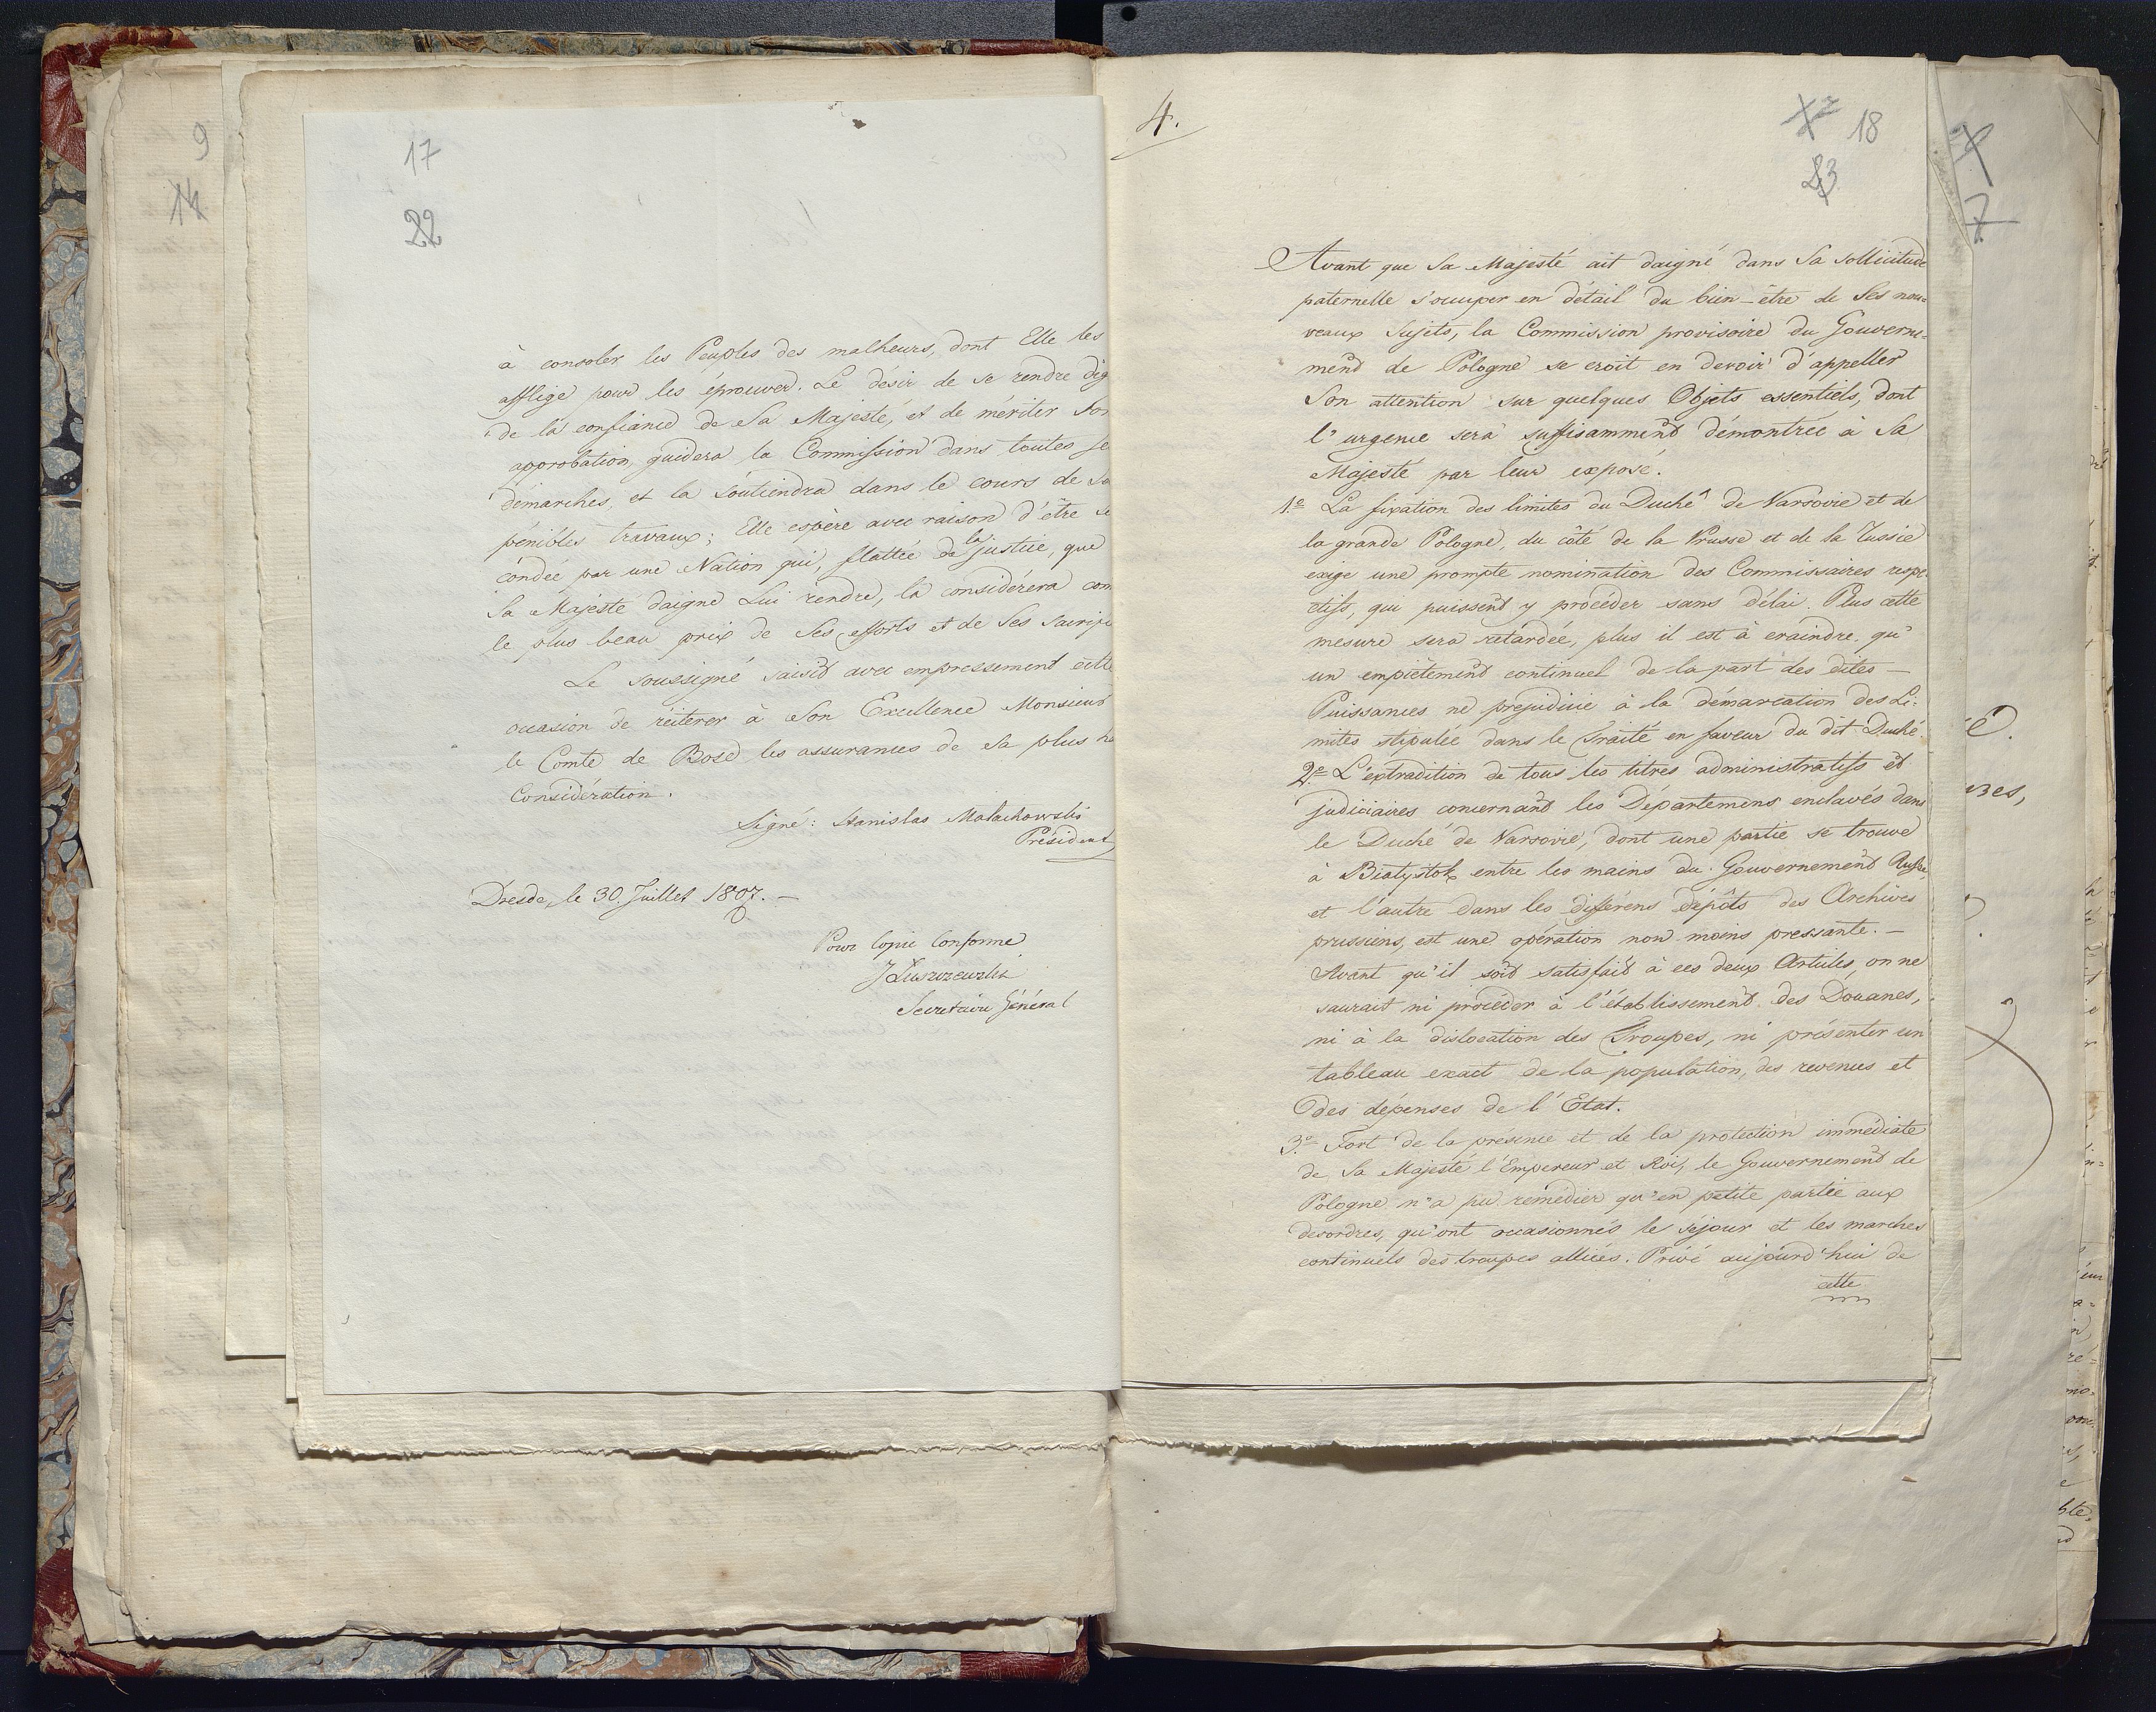 9
14
17
22
à consoler les Peuples des malheurs, dont Elle les
afflige pour les éprouver. Le désir de se rendre dig
de la confiance de Sa Majesté, et de mériter Son
approbation, guidera la Commission dans toutes se
démarches, et la soutiendra dans le cours de sa
pénibles travaux; Elle espère avec raison d'être se
condée par une Nation qui, flattée de la justice, que
Sa Majesté daigne Lui rendre, la considérera com
le plus beau prix de Ses efforts et de Ses Sacrifi
Le soussigné saisit avec empressement cette
occasion de réiterer à Son Excellence Monsieur
le Comte de Bose les assurances de sa plus ha
Considération.
Signé: Stanislas Malachowski
Président
Dresde, le 30. Juillet 1807. –
Pour Copie Conforme
Secretaire Général
4.
18
23
Avant que Sa Majesté ait daigné dans Sa sollicitude
paternelle s'occuper en détail du bien-être de Ses nou=
veaux Sujets, la Commission provisoire du Gouverne=
ment de Pologne se croit en devoir d'appeller
Son attention sur quelques Objets essentiels, dont
l'urgence sera suffisamment démontrée à Sa
Majesté par leur exposé.
1.º La fixation des limites du Duché de Varsovie et de
la grande Pologne, du côté de la Prusse et de la Russie
exige une prompte nomination des Commissaires respe
ctifs, qui puissent y procéder sans délai. Plus cette
mesure sera retardée, plus il est à craindre qu'
un empiètement continuel de la part des dites –
Puissances ne prejudicie à la démarcation des Li=
mites stipulée dans le Traité en faveur du dit Duché.
2.º L'extradition de tous les titres administratifs et
judiciaires concernant les Départemens enclavés dans
le Duché de Varsovie, dont une partie se trouve
à Białystok entre les mains du Gouvernement Russe,
et l'autre dans les différens dépôts des Archives
prussiens, est une opération non moins pressante. –
Avant qu'il soit satisfait à ces deux Articles, on ne
saurait ni procéder à l'établissement des Douanes,
ni à la dislocation des Troupes, ni présenter un
tableau exact de la population, des revenus et
des dépenses de l'Etat.
3.º Fort de la présence et de la protection immédiate
de Sa Majesté l'Empereur et Roi, le Gouvernement de
Pologne n'a pu remédier qu'en petite partie aux
desordres, qu'ont occasionnés le séjour et les marches
continuels des troupes alliées. Privé aujourd'hui de
cette
7